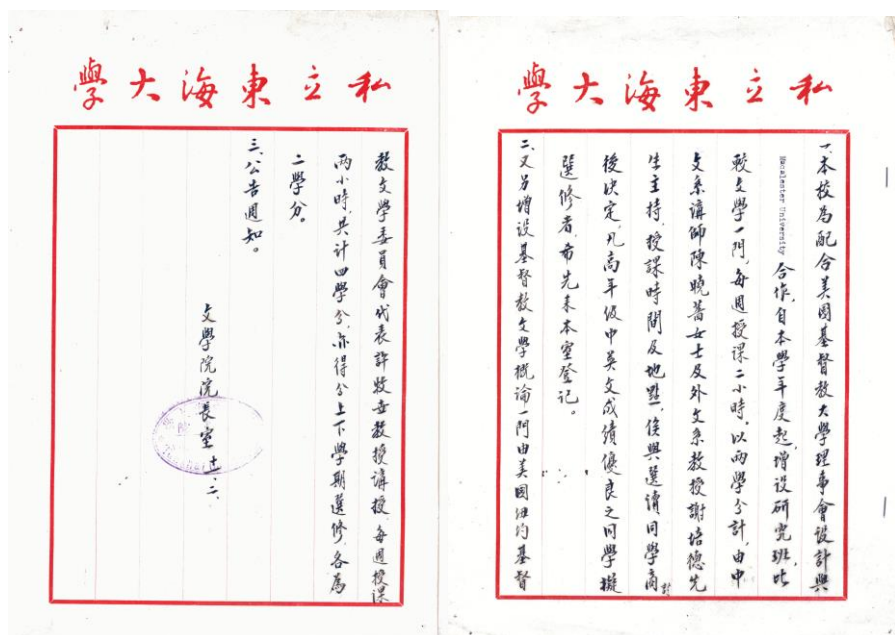 私立東海大學
一、本校為配合美國基督教大學理事會設計與
Macalester University 合作，自本學年度起，增設研究班比
較文學一門，每週授課二小時，以兩學分計，由中
文系講師陳曉薔女士及外文系教授謝培德先
生主持，授課時間及地點，俟與選讀同學商討
後決定，凡高年級中英文成績優良之同學擬
選修者，希先來本室登记。
二、又另增設基督教文學概論一門由美國紐約基督
私立東海大學
教文學委員會代表許牧世教授講授，每週授課
兩小時，共計四學分，亦得分上下學期選修，各為
二學分。
三、公告週知。
文學院院長室 十一、二、